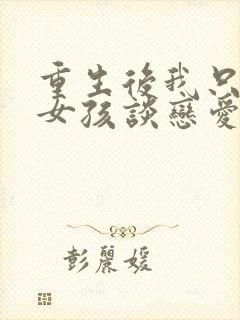 重生後我只
女孩談戀愛
彭麗媛